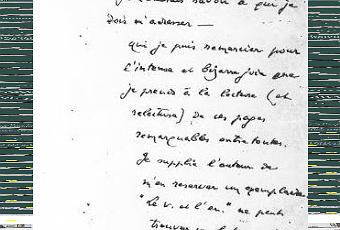 savoir à qui je
dois m'adresser —
qui je puis remercier pour
l'intense et bizarre joie que
je prends à la lecture (et
relecture) de ces pages
remarquables entre toutes.
Je supplie l'auteur de
m'en reserver un exemplaire
"Le v. et l'en." ne peut
trouver